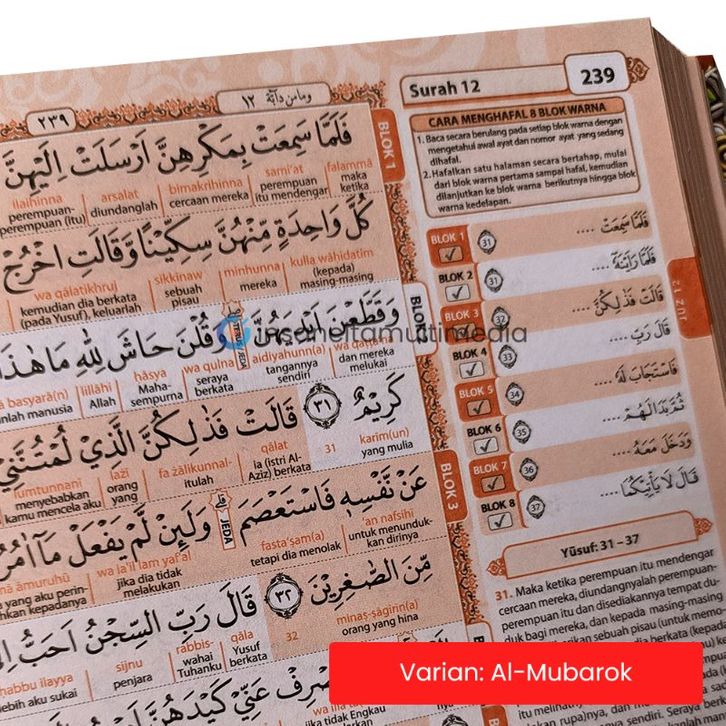 Surah 12
239
وما من دآبة ١٢
٢٣٩
CARA MENGHAFAL 8 BLOK WARNA
1. Baca secara berulang pada setiap blok warna dengan
mengetahui awal ayat dan nomor ayat yang sedang
dihafal.
2. Hafalkan satu halaman secara bertahap, mulai
dari blok warna pertama sampai hafal, kemudian
dilanjutkan ke blok warna berikutnya hingga blok
warna kedelapan.
BLOK 1 31 فَلَمَّا سَمِعَتْ ....
BLOK 2 31 فَلَمَّا رَاَيْنَهٗٓ ....
BLOK 3 32 قَالَتْ فَذٰلِكُنَّ ....
BLOK 4 33 قَالَ رَبِّ ....
BLOK 5 34 فَاسْتَجَابَ لَهٗ ....
BLOK 6 35 ثُمَّ بَدَا لَهُمْ ....
BLOK 7 36 وَدَخَلَ مَعَهُ ....
BLOK 8 37 قَالَ لَا يَأْتِيْكُمَا ....
JUZ 12
Yūsuf: 31 – 37
31. Maka ketika perempuan itu mendengar
cercaan mereka, diundangnyalah perempuan-
perempuan itu dan disediakannya tempat du-
duk bagi mereka, dan kepada masing-masing
BLOK 1
فَلَمَّا سَمِعَتْ بِمَكْرِهِنَّ اَرْسَلَتْ اِلَيْهِنَّ
falammā sami'at bimakrihinna arsalat ilaihinna
maka ketika perempuan itu mendengar cercaan mereka diundanglah perempuan-perempuan (itu)
كُلَّ وَاحِدَةٍ مِّنْهُنَّ سِكِّيْنًا وَّقَالَتِ اخْرُجْ
kulla wāhidatim minhunna sikkinaw wa qālatikhruj
(kepada) masing-masing mereka sebuah pisau kemudian dia berkata (pada Yusuf), keluarlah
BLOK
وَقَطَّعْنَ اَيْدِيَهُنَّ وَقُلْنَ حَاشَ لِلّٰهِ مَا هٰذَا
JEDA
aidiyahunn(a) wa qulna ḥāsya lillāhi basyarā(n)
dan mereka melukai tangannya sendiri seraya berkata Maha-sempurna Allah manusia
كَرِيْمٌ ٣١ قَالَتْ فَذٰلِكُنَّ الَّذِيْ لُمْتُنَّنِيْ
karīm(un) 31 qālat fa żālikunnal- lażī lumtunnanī
yang mulia ia (istri Al-Aziz) berkata itulah orang yang menyebabkan kamu mencela aku
BLOK 3
عَنْ نَّفْسِهٖ فَاسْتَعْصَمَ وَلَىِٕنْ لَّمْ يَفْعَلْ مَآ اٰمُرُ
JEDA
'an nafsihī fasta'ṣam(a) wa la'il lam yaf'al āmuruhū
untuk menunduk-kan dirinya tetapi dia menolak jika dia tidak melakukan yang aku perin-
مِّنَ الصّٰغِرِيْنَ ٣٢ قَالَ رَبِّ السِّجْنُ اَحَبُّ
minaṣ-ṣāgirīn(a) 32 qāla rabbis- sijnu aḥabbu ilayya
orang yang hina Yusuf berkata wahai Tuhanku penjara lebih aku sukai
insanelitamultimedia
Varian: Al-Mubarok